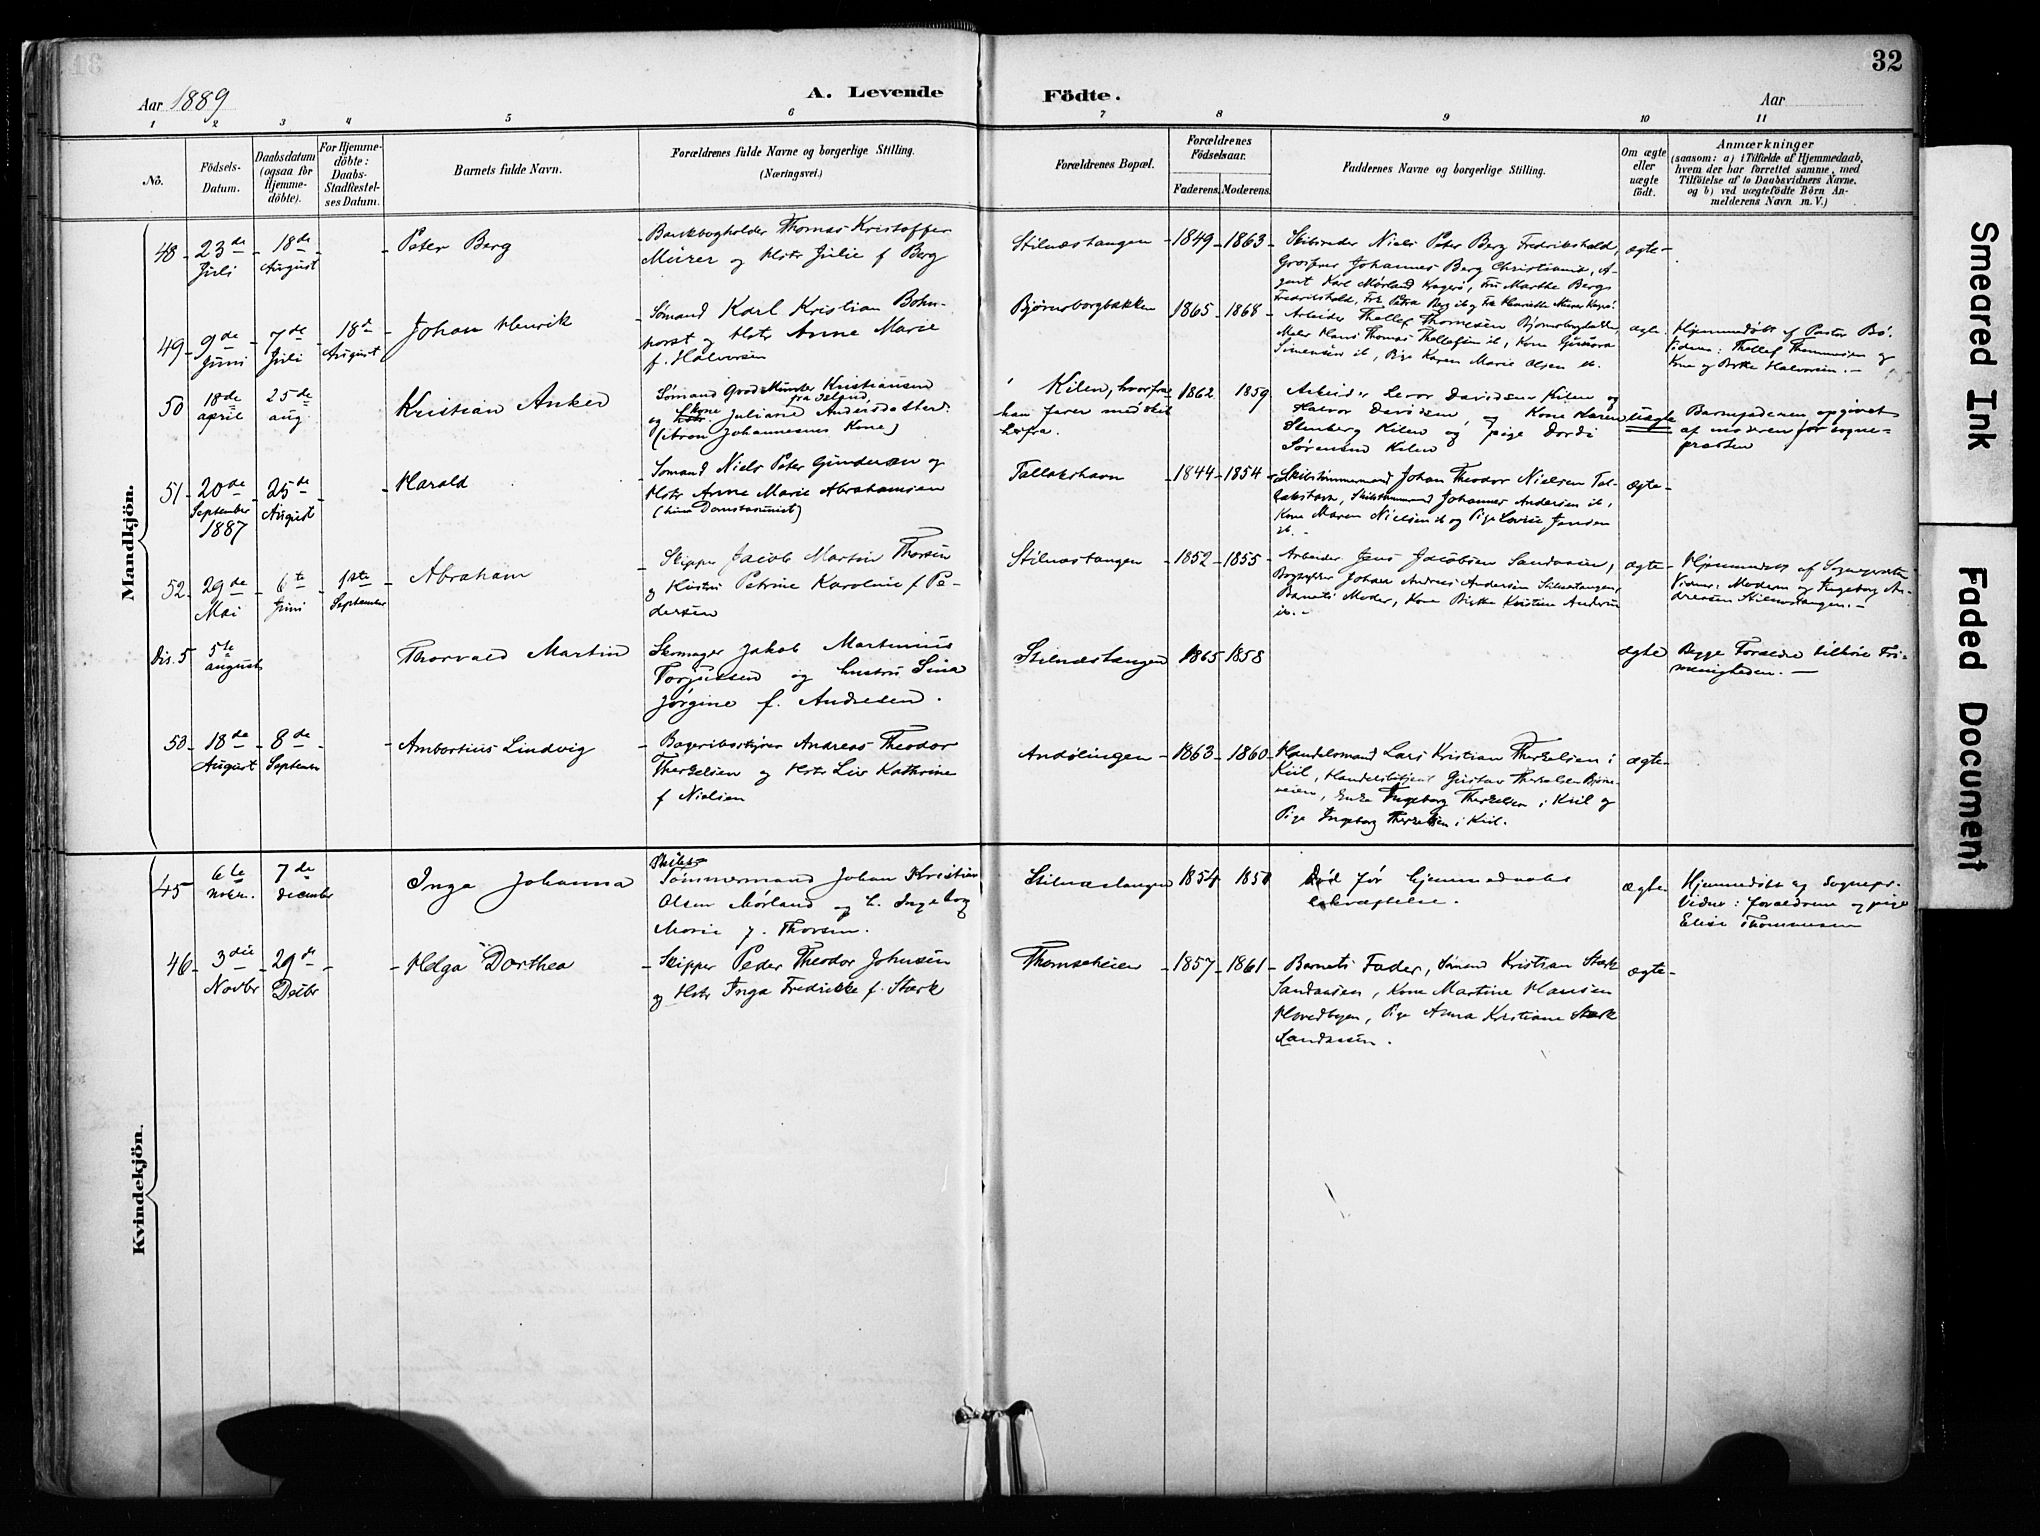 32
Aar 1889
A. Levende Födte.
Aar
1 2 3 4 5 6 7 8 9 10 11
No.
Födsels-
Datum.
Daabsdatum
(ogsaa for
Hjemme-
döbte).
For Hjemme-
döbte:
Daabs-
Stadfæstel-
ses Datum.
Barnets fulde Navn.
Forældrenes fulde Navne og borgerlige Stilling.
(Næringsvei.)
Forældrenes Bopæl.
Forældrenes
Födselsaar.
Faderens. Moderens.
Faddernes Navne og borgerlige Stilling.
Om ægte
eller
uægte
födt.
Anmærkninger
(saasom: a) i Tilfælde af Hjemmedaab,
hvem der har forrettet samme, med
Tilföielse af to Daabsvidners Navne,
og b) ved uægtefödte Börn An-
melderens Navn m. V.)
Mandkjön.
48 23de Juli
18de August
Peter Berg
Bankbogholder Thomas Kristoffer
Mürer og Hstr Julie f Berg
Stilnæstangen
1849 1863
Skibsreder Niels Peter Berg Fredrikshald,
Johannes Berg Christiania, A-
gent Karl Mørland Kragerø, Fru Marthe Berg
Fredrikshald, Frk Petra Berg
ægte
49 9de Juni
7de Juli
18de August
Johan Henrik
Sømand Karl Kristian Bohn-
horst og Hstr Anne Marie
f. Halvorsen
Bjørnsborgbakken
1865 1868
Arbeider Thellef Thomesen Bjørnsborgbakken
Maler Hans Thomas Thellefsen ib, Kone Gunvora
Simensen ib, Pige Karen Marie Olsen ib.
ægte
Hjemmedøbt af Pastor Bö.
Vidner: Thellef Thommesen og
Kone og Halvorsen.
50 18de april
25de aug.
Kristian Anker
Sømand Kristiansen
og Kone Juliane Andersdatter.
(Aron Johannesens Kone)
Kilen, hvorfra
han farer med skib
herfra.
1862 1859
Arbeider Levor Davidsen Kilen og
Halvor Davidsen og Kone Karen
Stenberg Kilen og pige Dorde
Sørensen Kilen
uægte
Barnefaderen opgivet
af moderen for sogne-
præsten
51 20de September 1887
25de August
Harald
Sømand Niels Peter Gundersen og
Hstr Anne Marie Abrahamsen
Tallakshavn
1844 1854
Skibstømmermand Johan Theodor Nielsen Tal-
lakshavn, Skibstømmermand Johannes Andersen ib,
Kone Maren Nielsen ib og Pige Lovise Jensen
ib.
ægte
52 29de Mai
6te Juni
1ste September
Abraham
Skipper Jacob Martin Thorsen
og Hustru Petrine Karoline f. Pe-
dersen
Stilnæstangen
1852 1855
Arbeider Jens Jacobsen Sandaasen,
Johan Andreas Andersen Stilnæstangen,
Barnets Moder, Kone Kristine Andersen
ib.
ægte
Hjemmedøbt af Sognepræsten
Vidner: Moderen og Ingeborg An-
dreasen Stilnæstangen.
Dis. 5 5te august
Thorvald Martin
Skomager Jakob Martinius
Torjussen og hustru Sina
Jørgine f. Andresen.
Stilnæstangen
1865 1858
ægte
Begge Forældre tilhöre Fri-
menigheden.
53 18de August
8de September
Ambortius Lindvig
Bageribestyrer Andreas Theodor
Therkelsen og Hstr Liv Kathrine
f Nielsen
Andölingen
1863 1860
Handelsmand Lars Kristian Therkelsen i
Kiil, Handelsbetjent Gustav Therkelsen Bjørne-
veien, Enke Ingeborg Therkelsen i Kiil og
Pige Ingeborg Therkelsen i Kiil.
ægte
Kvindekjön.
45 6te Novbr.
7de December
Inga Johanna
Skibs-
Tømmermand Johan Kristian
Olsen Mørland og h. Ingeborg
Marie f. Thorsen.
Stilnæstangen
1854 1850
Død før hjemmedaabs
bekræftelse.
ægte
Hjemmedøbt af Sognepr.
Vidner: forældrene og pige
Elise Thommesen
46 3die Novbr
29de Decbr
Helga Dorthea
Skipper Peder Theodor Johnsen
og Hstr Inga Fredrikke f. Stærk
Thomseheien
1857 1861
Barnets Fader, Sømand Kristian Stærk
Sandaasen, Kone Martine Hansen
Hovedbyen, Pige Anna Kristiane Stærk
Sandaasen.
ægte
Smeared Ink
Faded Document